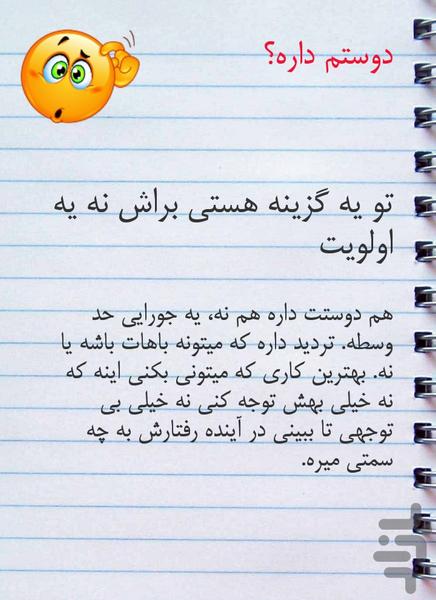 دوستم داره؟
تو یه گزینه هستی براش نه یه
اولویت
هم دوستت داره هم نه، یه جورایی حد
وسطه. تردید داره که میتونه باهات باشه یا
نه. بهترین کاری که میتونی بکنی اینه که
نه خیلی بهش توجه کنی نه خیلی بی
توجهی تا ببینی در آینده رفتارش به چه
سمتی میره.
بازار